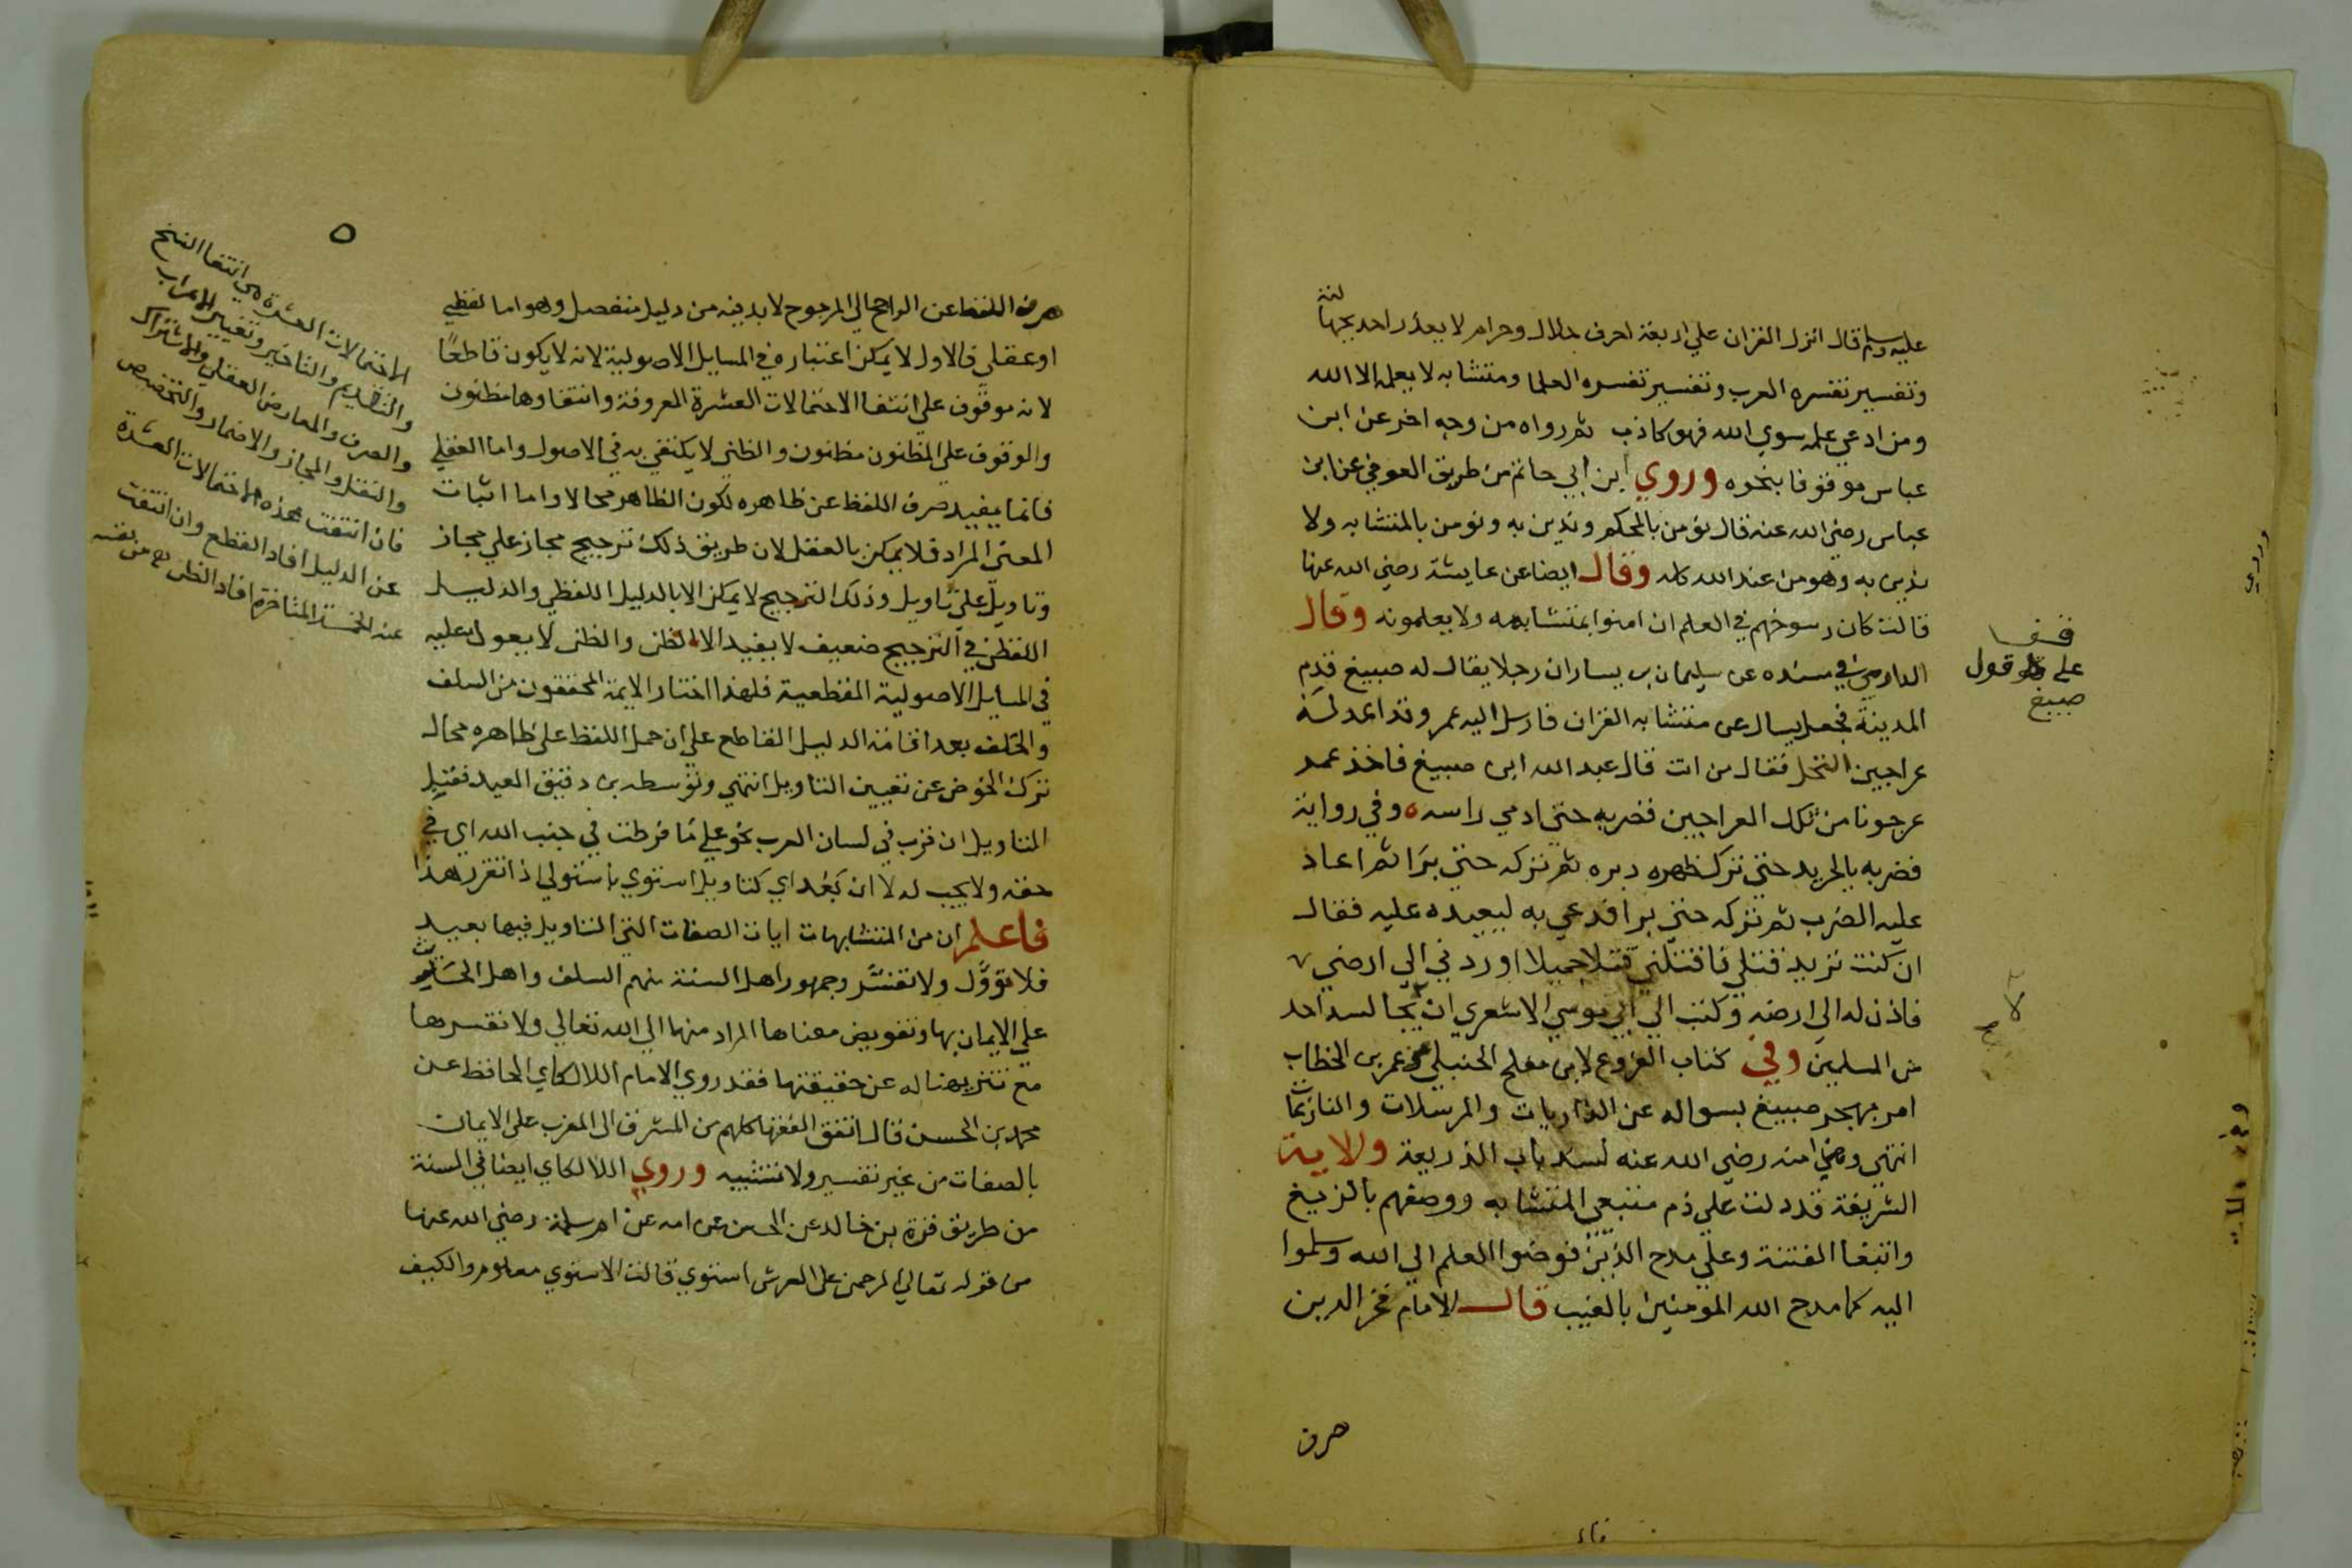 عليه وسلم قال انزل القران علي اربعة احرف حلال وحرام لا يعذر احد بجهالته
وتفسير تفسره العرب وتفسير تفسره العلما ومتشابه لا يعلمه الا الله
ومن ادعي علمه سوي الله فهو كاذب ثم رواه من وجه اخر عن ابن
عباس موقوفا بنحوه وروي ابن ابي حاتم من طريق العوفي عن ابن
عباس رضي الله عنه قال نؤمن بالمحكم وندين به ونومن بالمتشابه ولا
ندين به وهو من عند الله كله وقال ايضا عن عايشة رضي الله عنها
قالت كان رسوخهم في العلم ان امنوا بمتشابهه ولا يعلمونه وقال
الدارمي في مسنده عن سليمان بن يسار ان رجلا يقال له صبيغ قدم
المدينة فجعل يسال عن متشابه القران فارسل اليه عمر وقد اعد له
عراجين النخل فقال من انت قال عبد الله ابن صبيغ فاخذ عمر
عرجونا من تلك العراجين فضربه حتي ادمي راسه وفي رواية
فضربه بالجريد حتي ترك ظهره دبره ثم تركه حتي برا ثم اعاد
عليه الضرب ثم تركه حتي برا فدعي به ليعيده عليه فقال
ان كنت تريد قتلي فاقتلني قتلا جميلا او ردني الي ارضي
فاذن له الي ارضه وكتب الي ابي موسي الاشعري ان لا يجالسه احد
من المسلمين وفي كتاب الفروع لابن مفلح الحنبلي عمر بن الخطاب
امر بهجر صبيغ بسواله عن الذاريات والمرسلات والنازعات
انتهي وهي منه رضي الله عنه لسد باب الذريعة والاية
الشريفة قد دلت علي ذم متبعي المتشابه ووصفهم بالزيغ
وابتغا الفتنة وعلي مدح الذين فوضوا العلم الي الله وسلموا
اليه كما مدح الله المؤمنين بالغيب قال الامام فخر الدين
قف
علي قول
صبيغ
صرف
٥
صرف اللفظ عن الراجح الي المرجوح لا بد فيه من دليل منفصل وهو اما لفظي
او عقلي فالاول لا يمكن اعتباره في المسايل الاصولية لانه لا يكون قاطعا
لانه موقوف علي انتفا الاحتمالات العشرة المعروفة وانتفاوها مظنون
والوقوف علي المظنون مظنون والظني لا يكتفي به في الاصول واما العقلي
فانما يفيد صرف اللفظ عن ظاهره لكون الظاهر محالا واما اثبات
المعني المراد فلا يمكن بالعقل لان طريق ذلك ترجيح مجاز علي مجاز
وتاويل علي تاويل وذلك الترجيح لا يمكن الا بالدليل اللفظي والدليل
اللفظي في الترجيح ضعيف لا يفيد الا الظن والظن لا يعول عليه
في المسايل الاصولية القطعية فلهذا اختار الايمة المحققون من السلف
والخلف بعد اقامة الدليل القاطع علي ان حمل اللفظ علي ظاهره محال
ترك الخوض عن تعيين التاويل انتهي وتوسط بن دقيق العيد فقبل
التاويل ان قرب في لسان العرب نحو علي ما فرطت في جنب الله اي في
حقه ولا يجب له لا ان بعد اي كتاويل استوي باستولي اذا تقرر هذا
فاعلم ان من المتشابهات ايات الصفات التي التاويل فيها بعيد
فلا تؤول ولا تفسر وجمهور اهل السنة منهم السلف واهل الحديث
علي الايمان بها وتفويض معناها المراد منها الي الله تعالي ولا نفسرها
مع تنزيهنا له عن حقيقتها فقد روي الامام اللالكاي الحافظ عن
محمد بن الحسن قال اتفق الفقها كلهم من المشرق الي المغرب علي الايمان
بالصفات من غير تفسير ولا تشبيه وروي اللالكاي ايضا في السنة
من طريق قرة بن خالد عن الحسن عن امه عن ام سلمة رضي الله عنها
من قوله تعالي الرحمن علي العرش استوي قالت الاستوي معلوم والكيف
الاحتمالات العشرة هي انتفا النسخ
والتقديم والتاخير وتغيير الاعراب
والصرف والمعارض العقلي والاشتراك
والنقل والمجاز والاضمار والتخصيص
فان انتفت هذه الاحتمالات العشرة
عن الدليل افاد القطع وان انتفت
عنه الخمسة المتاخرة افاد الظن